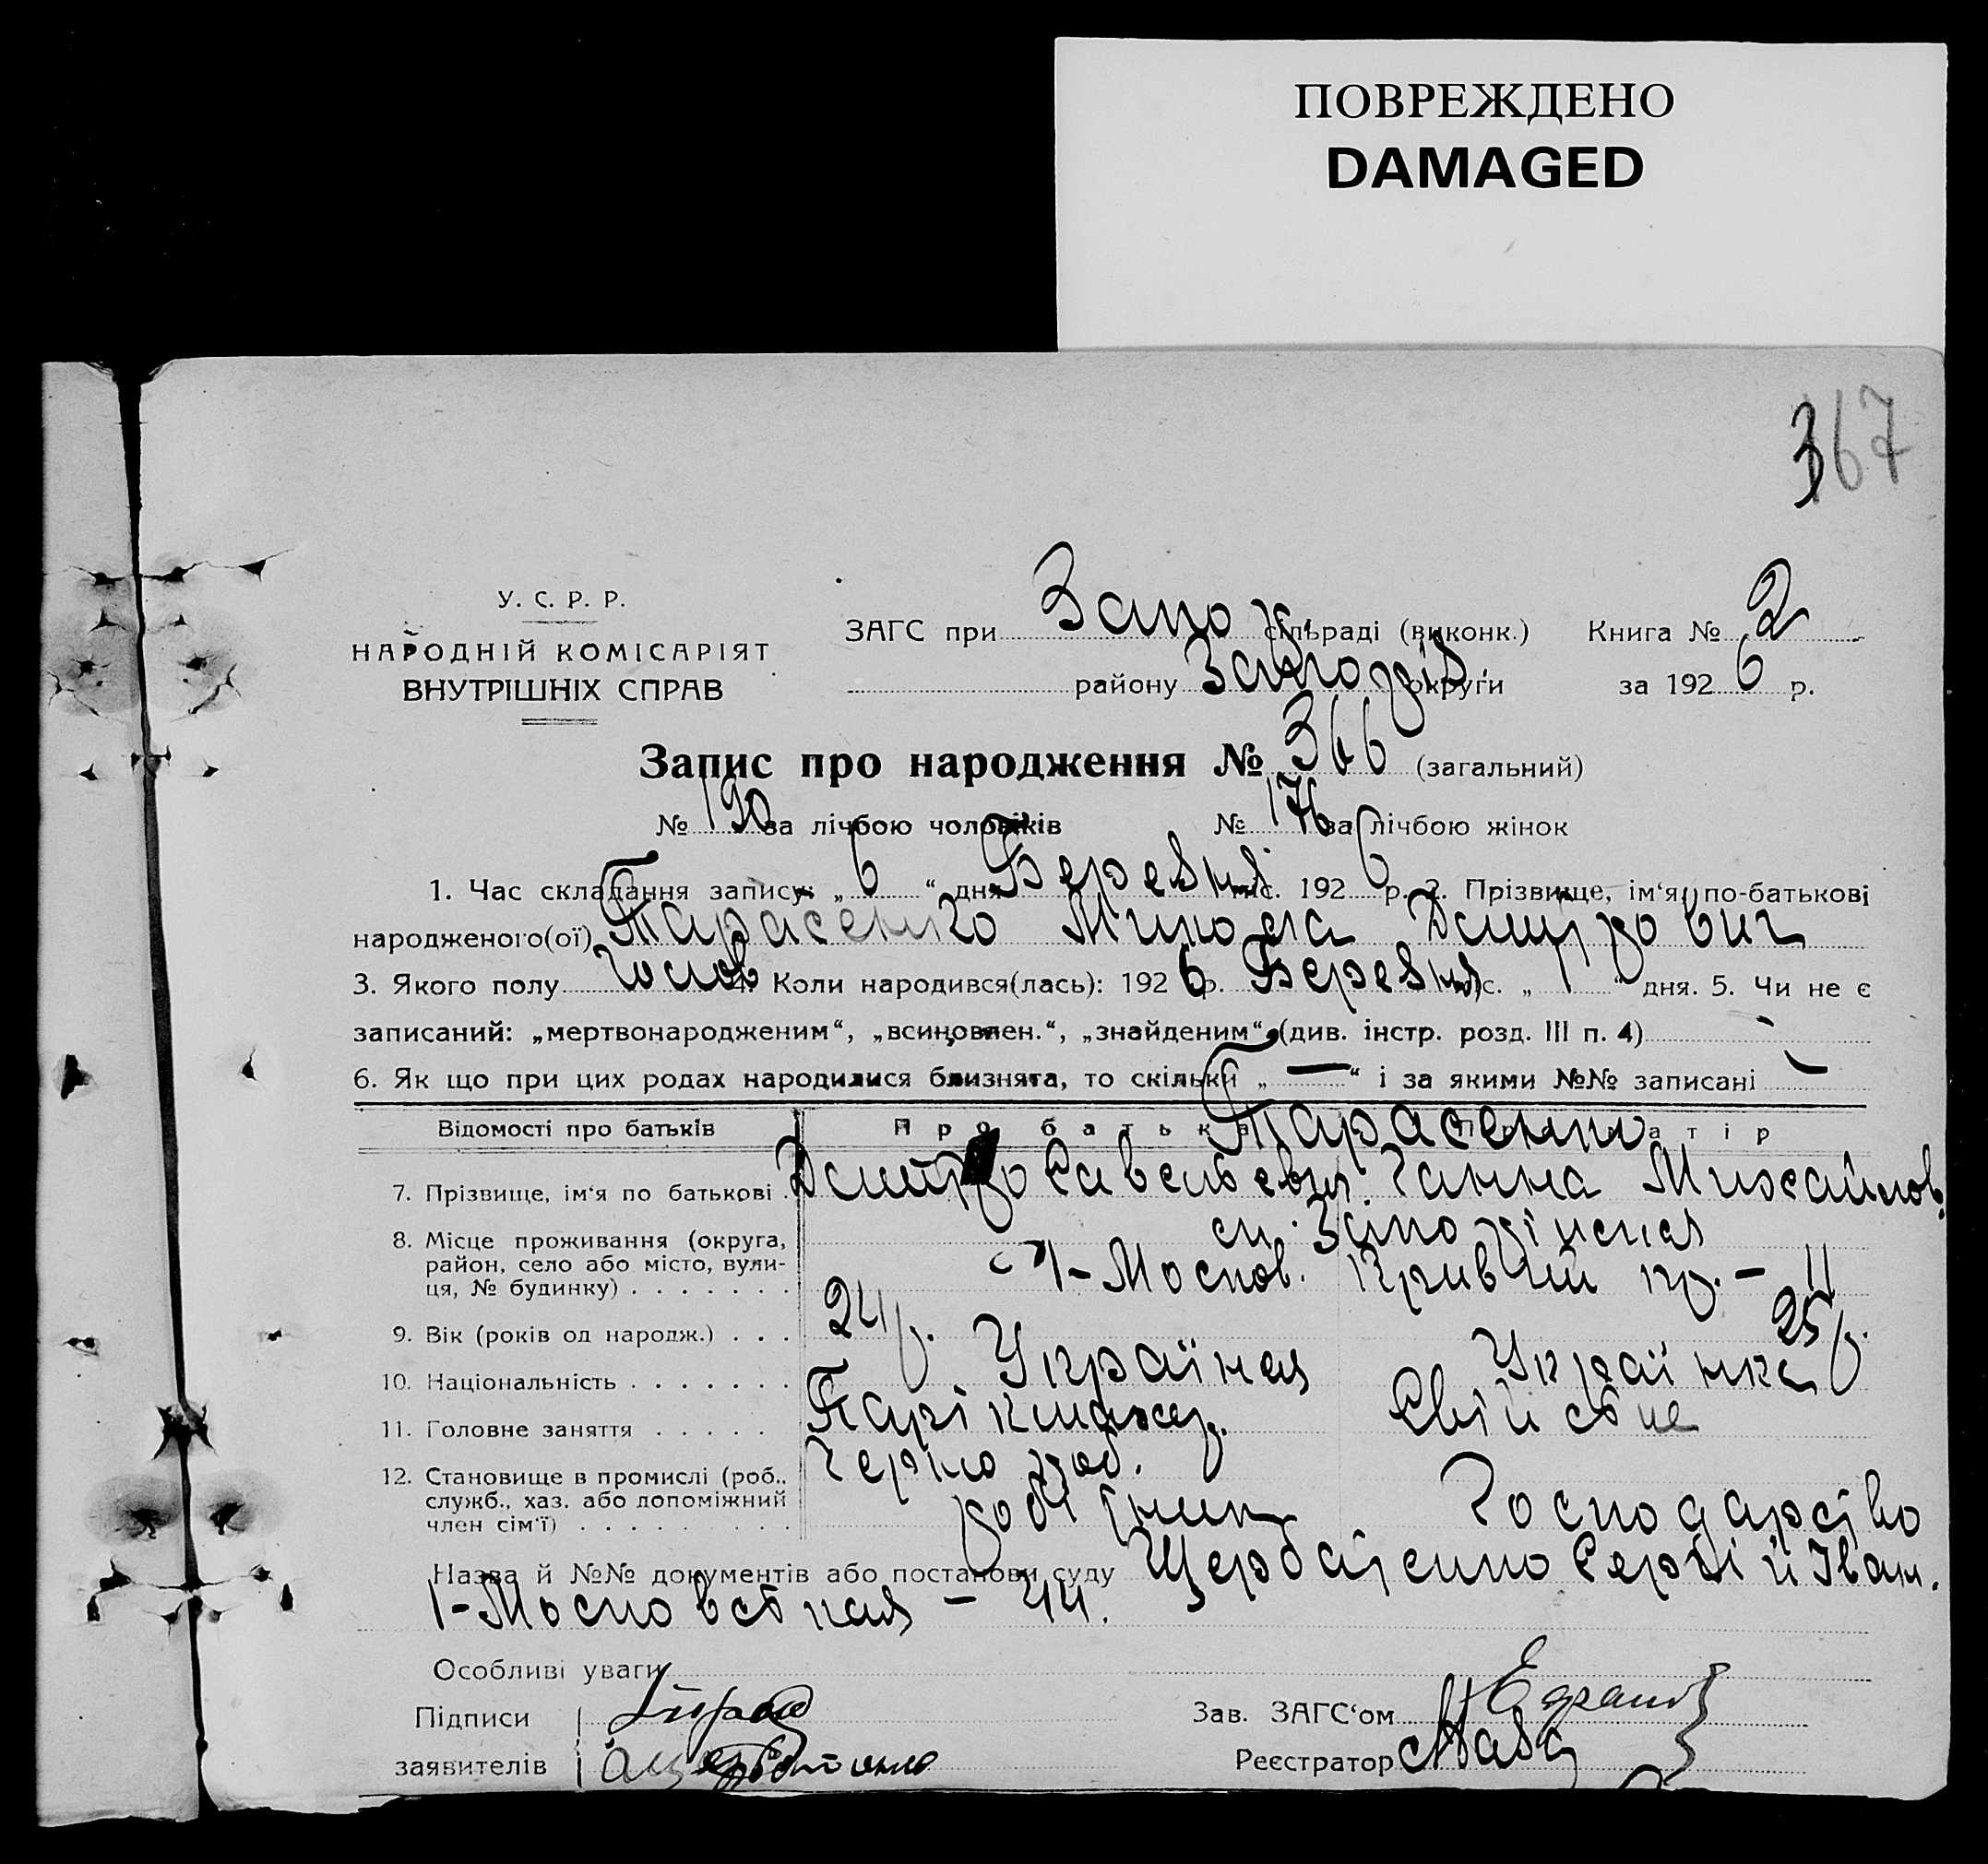 ПОВРЕЖДЕНО
DAMAGED
367
У. С. Р. Р.
НАРОДНІЙ КОМІСАРІЯТ
ВНУТРІШНІХ СПРАВ
ЗАГС при Запож. сільраді (виконк.) Книга № 2
району Запоріз. округи за 1926 р.
Запис про народження № 366 (загальний)
№ 190 за лічбою чоловіків № 176 за лічбою жінок
1. Час складання запису: „6“ дня Березня міс. 1926 р. 2. Прізвище, ім‘я, по-батькові
народженого(ої) Тарасенко Микола Дмитрович
3. Якого полу чолов 4. Коли народився(лась): 1926 р. Березня міс. „1“ дня. 5. Чи не є
записаний: „мертвонародженим“, „всиновлен.“, „знайденим“ (див. інстр. розд. III п. 4) -
6. Як що при цих родах народилися близнята, то скільки „—“ і за якими №№ записані —
Відомості про батьків Про батька Про матір
Тарасенко
7. Прізвище, ім‘я по батькові Дмитро Савельевич. Ганна Михайлов.
8. Місце проживання (округа, район, село або місто, вулиця, № будинку) ст. Запоріжжя
1-Москов. Кривий пр. – 11
9. Вік (років од народж.) 24 р. 25 р.
10. Національність Українец Українка
11. Головне заняття Свійське
12. Становище в промислі (роб., служб., хаз. або допоміжний член сім‘ї) робітник Господарство
Назва й №№ документів або постанови суду Щербатенко Сергій Іван.
1-Московская – 44.
Особливі уваги
Підписи
заявителів
Зав. ЗАГС‘ом
Реєстратор